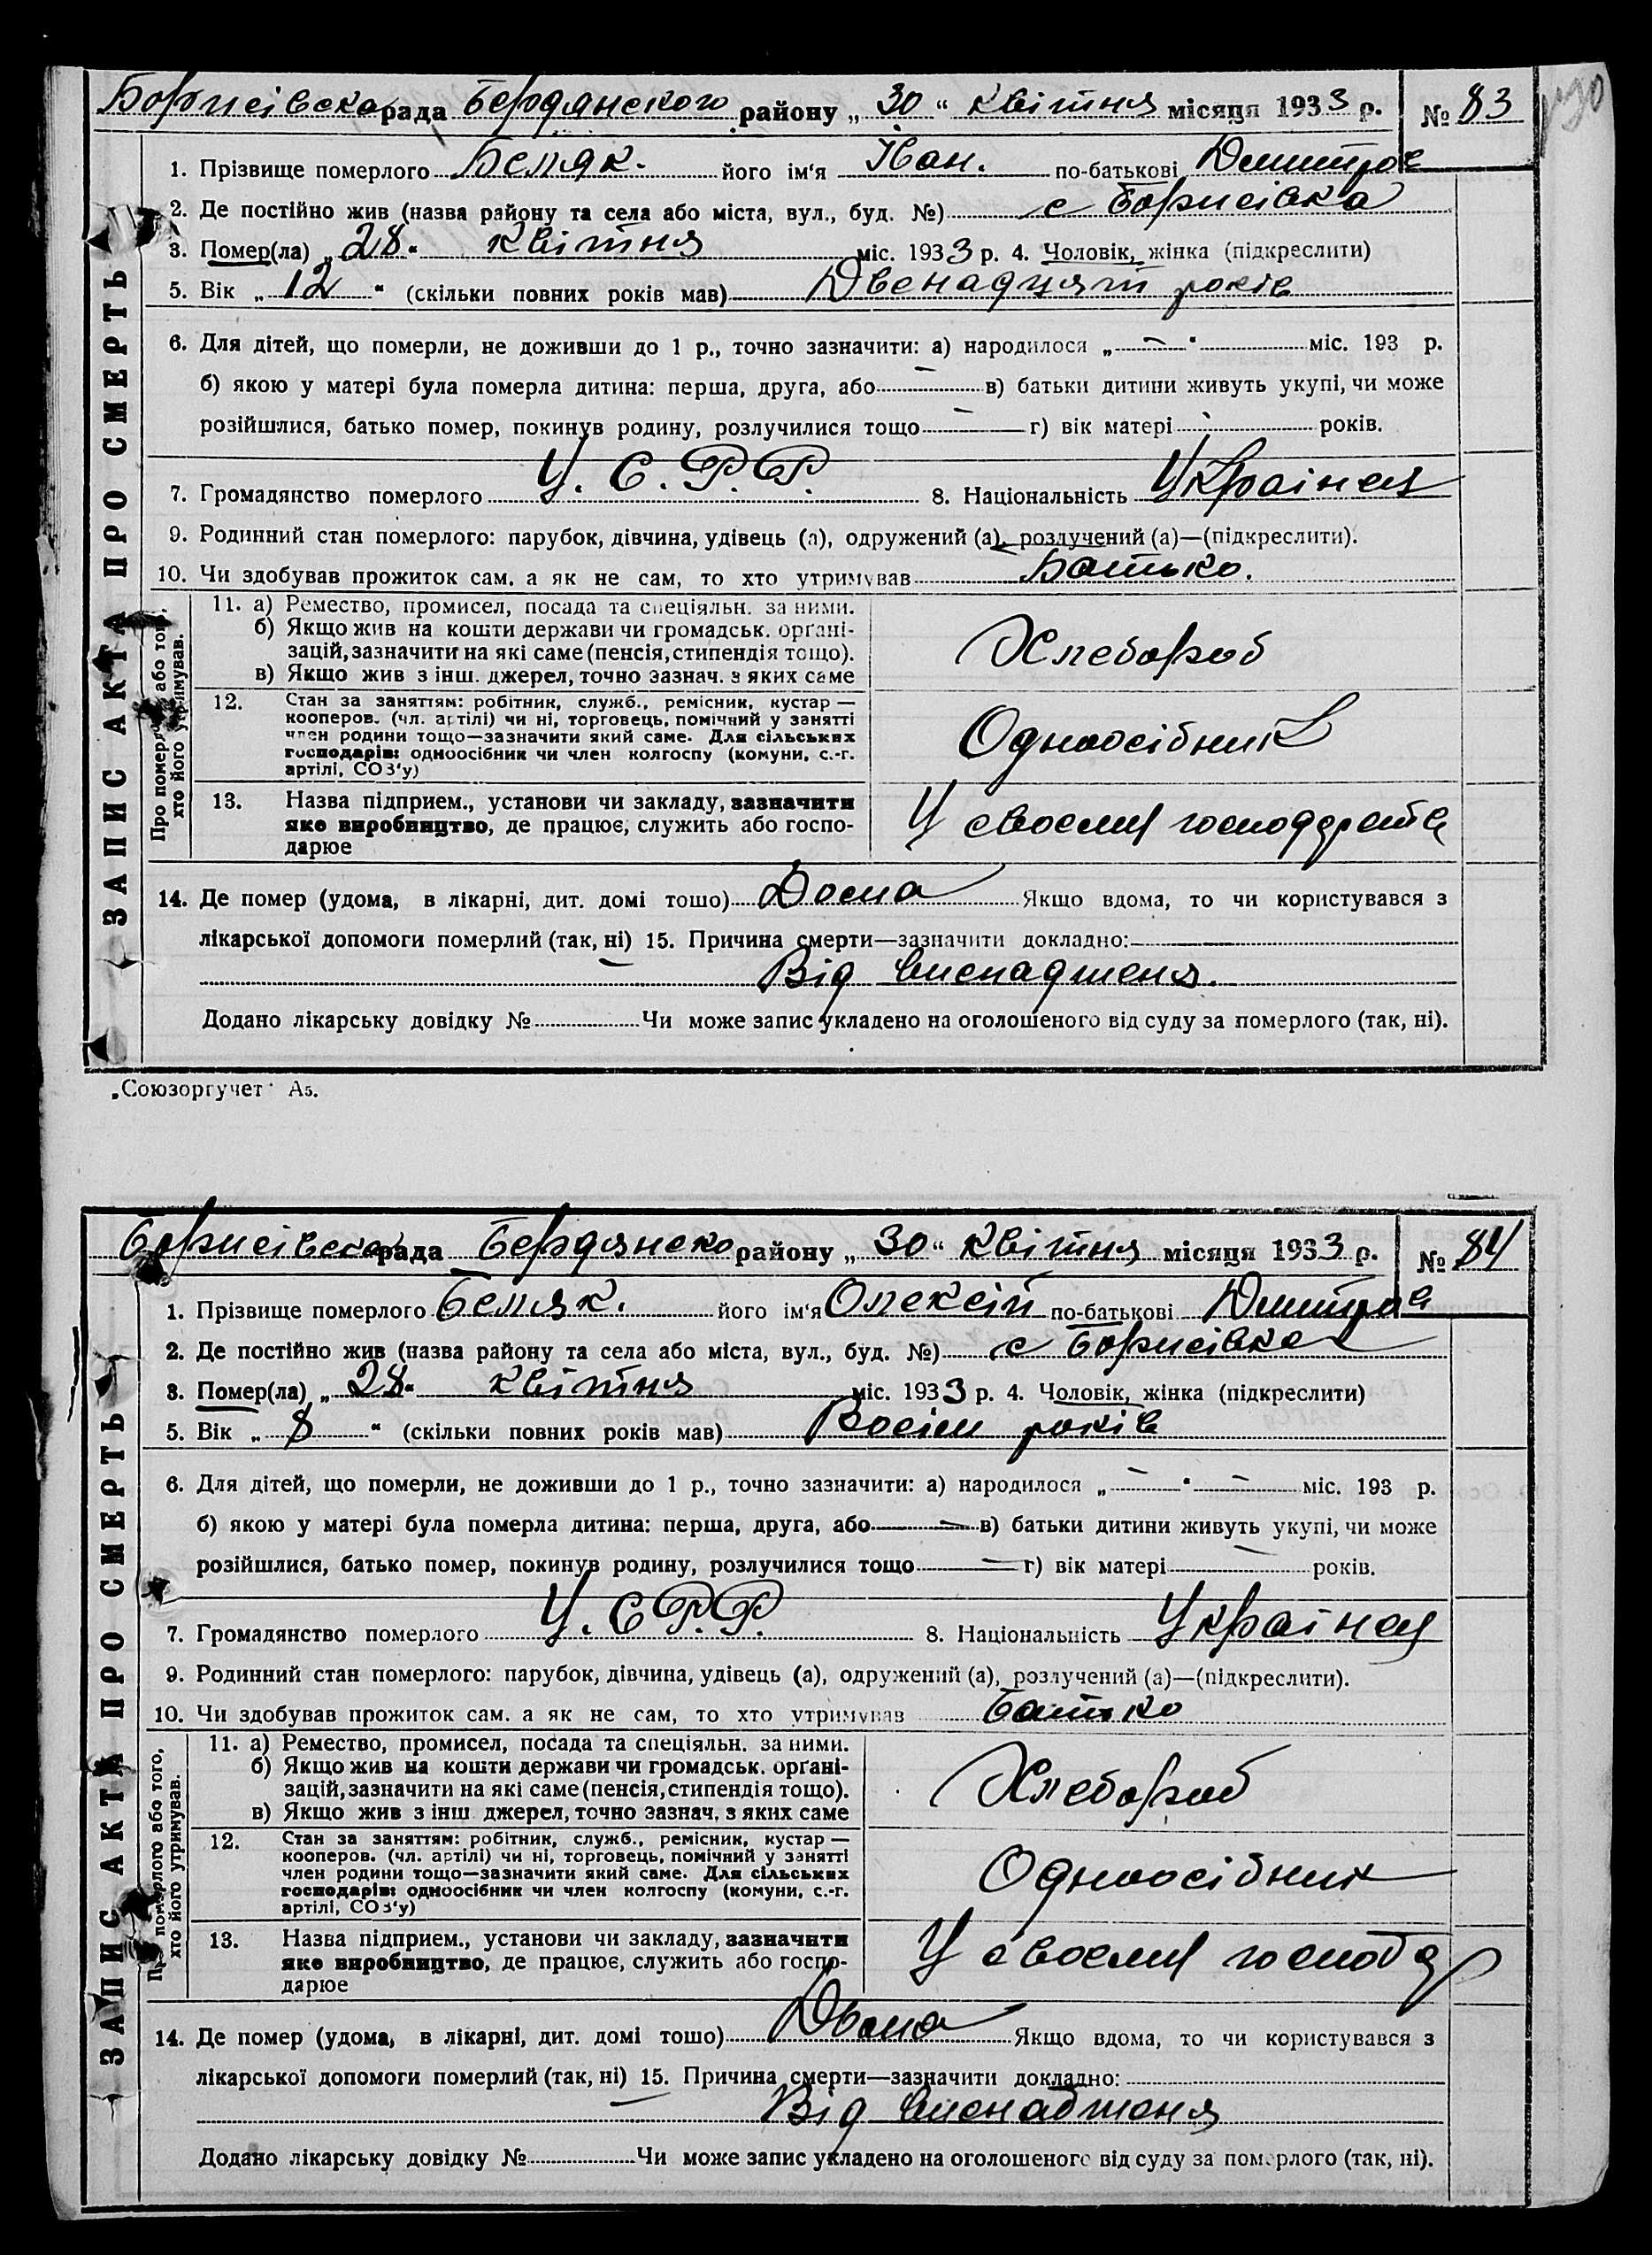 Борисівска рада Бердянского району „30“ Квітня місяця 1933 р. № 83
1. Прізвище померлого Беляк. його ім'я Іван. по-батькові Дмитров
2. Де постійно жив (назва району та села або міста, вул., буд. №) с Борисівка
3. Помер(ла) „28“ Квітня міс. 1933 р. 4. Чоловік, жінка (підкреслити)
5. Вік „12“ (скільки повних років мав) Двенадцять років
6. Для дітей, що померли, не доживши до 1 р., точно зазначити: а) народилося „—“ міс. 193 р.
б) якою у матері була померла дитина: перша, друга, або — в) батьки дитини живуть укупі, чи може
розійшлися, батько помер, покинув родину, розлучилися тощо — г) вік матері — років.
7. Громадянство померлого У.С.Р.Р. 8. Національність
9. Родинний стан померлого: парубок, дівчина, удівець (а), одружений (а), розлучений (а)—(підкреслити).
10. Чи здобував прожиток сам, а як не сам, то хто утримував Батько.
11. а) Ремество, промисел, посада та спеціяльн. за ними.
б) Якщо жив на кошти держави чи громадськ. органі-
зацій, зазначити на які саме (пенсія, стипендія тощо).
в) Якщо жив з інш. джерел, точно зазнач. з яких саме
Хлебороб
12. Стан за заняттям: робітник, служб., ремісник, кустар —
кооперов. (чл. артілі) чи ні, торговець, помічний у занятті
член родини тощо—зазначити який саме. Для сільських
господарів: одноосібник чи член колгоспу (комуни, с.-г.
артілі, СОЗ'у)
Одноосібник
13. Назва підприєм., установи чи закладу, зазначити
яке виробництво, де працює, служить або госпо-
дарює
У своему
14. Де помер (удома, в лікарні, дит. домі тошо) Дома Якщо вдома, то чи користувався з
лікарської допомоги померлий (так, ні) 15. Причина смерти—зазначити докладно:
Від виснадженя.
Додано лікарську довідку № Чи може запис укладено на оголошеного від суду за померлого (так, ні).
ЗАПИС АКТА ПРО СМЕРТЬ
Про померлого або того,
хто його утримував.
„Союзоргучет“ А5.
Борисівска рада Бердянско району „30“ Квітня місяця 1933 р. № 84
1. Прізвище померлого Беляк. його ім'я Олексій по-батькові Дмитров
2. Де постійно жив (назва району та села або міста, вул., буд. №) с Борисівка
3. Помер(ла) „28“ Квітня міс. 1933 р. 4. Чоловік, жінка (підкреслити)
5. Вік „8“ (скільки повних років мав) Восім років
6. Для дітей, що померли, не доживши до 1 р., точно зазначити: а) народилося „—“ — міс. 193 р.
б) якою у матері була померла дитина: перша, друга, або — в) батьки дитини живуть укупі, чи може
розійшлися, батько помер, покинув родину, розлучилися тощо — г) вік матері — років.
7. Громадянство померлого У.С.Р.Р. 8. Національність
9. Родинний стан померлого: парубок, дівчина, удівець (а), одружений (а), розлучений (а)—(підкреслити).
10. Чи здобував прожиток сам, а як не сам, то хто утримував Батько
11. а) Ремество, промисел, посада та спеціяльн. за ними.
б) Якщо жив на кошти держави чи громадськ. органі-
зацій, зазначити на які саме (пенсія, стипендія тощо).
в) Якщо жив з інш джерел, точно зазнач. з яких саме
Хлебороб
12. Стан за заняттям: робітник, служб., ремісник, кустар —
кооперов. (чл. артілі) чи ні, торговець, помічний у занятті
член родини тощо—зазначити який саме. Для сільських
господарів: одноосібник чи член колгоспу (комуни, с.-г.
артілі, СОЗ'у)
Одноосібник
13. Назва підприєм., установи чи закладу, зазначити
яке виробництво, де працює, служить або госпо-
дарює
У своему господ
14. Де помер (удома, в лікарні, дит. домі тошо) Дома Якщо вдома, то чи користувався з
лікарської допомоги померлий (так, ні) 15. Причина смерти—зазначити докладно:
Від виснадженя
Додано лікарську довідку № Чи може запис укладено на оголошеного від суду за померлого (так, ні).
ЗАПИС АКТА ПРО СМЕРТЬ
Про померлого або того,
хто його утримував.